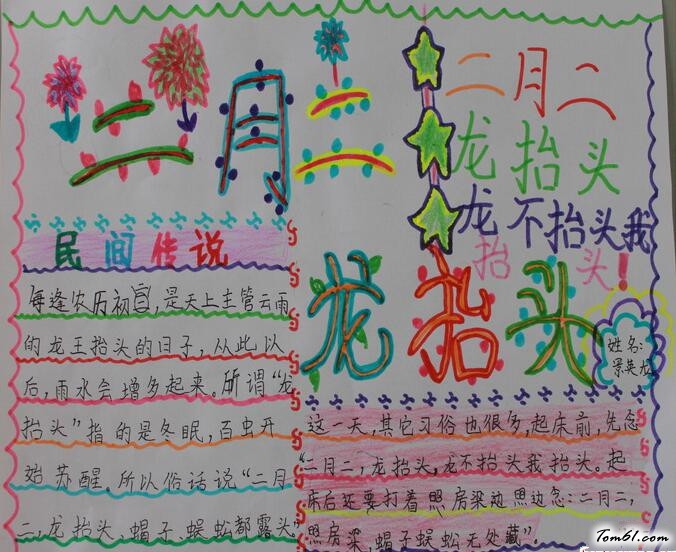 二月二
二月二
龙抬头
龙不抬头我
抬头!
龙抬头
姓名:
民间传说
每逢农历初，是天上主管云雨
的龙王抬头的日子，从此以
后，雨水会增多起来。所谓“龙
抬头”指的是冬眠，百虫开
始苏醒。所以俗话说“二月
二，龙抬头、蝎子、蜈蚣都露头”
这一天，其它习俗也很多，起床前，先念
“二月二，龙抬头，龙不抬头我抬头。起
床后还要打着照房梁边照边念：二月二，
照房梁，蝎子蜈蚣无处藏”。
Tom61.com